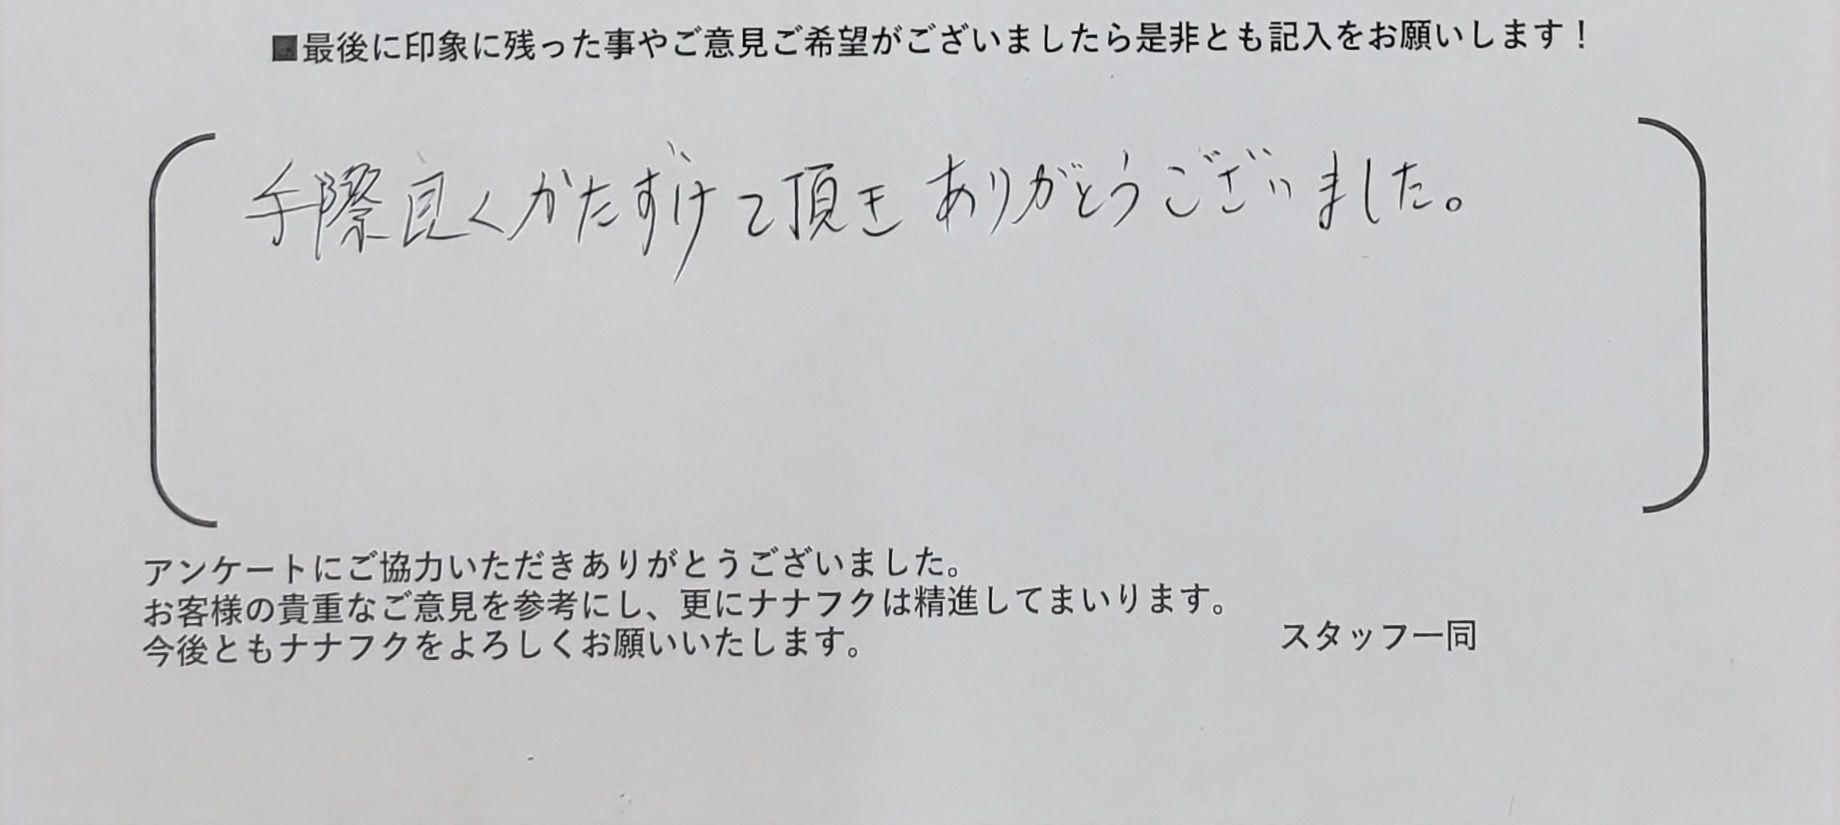 ■最後に印象に残った事やご意見ご希望がございましたら是非とも記入をお願いします！
手際良くかたずけて頂き ありがとうございました。
アンケートにご協力いただきありがとうございました。
お客様の貴重なご意見を参考にし、更にナナフクは精進してまいります。
今後ともナナフクをよろしくお願いいたします。
スタッフ一同